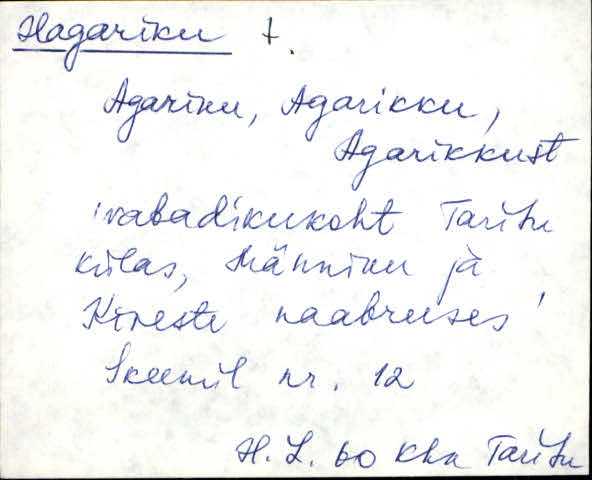 Hagariku t.
Agariku, Agarikku,
Agarikkust
'vabadikukoht Taritu
külas, Männiku ja
Kireste naabruses'
Skeemil nr. 12
H. L. 60 Khk Taritu